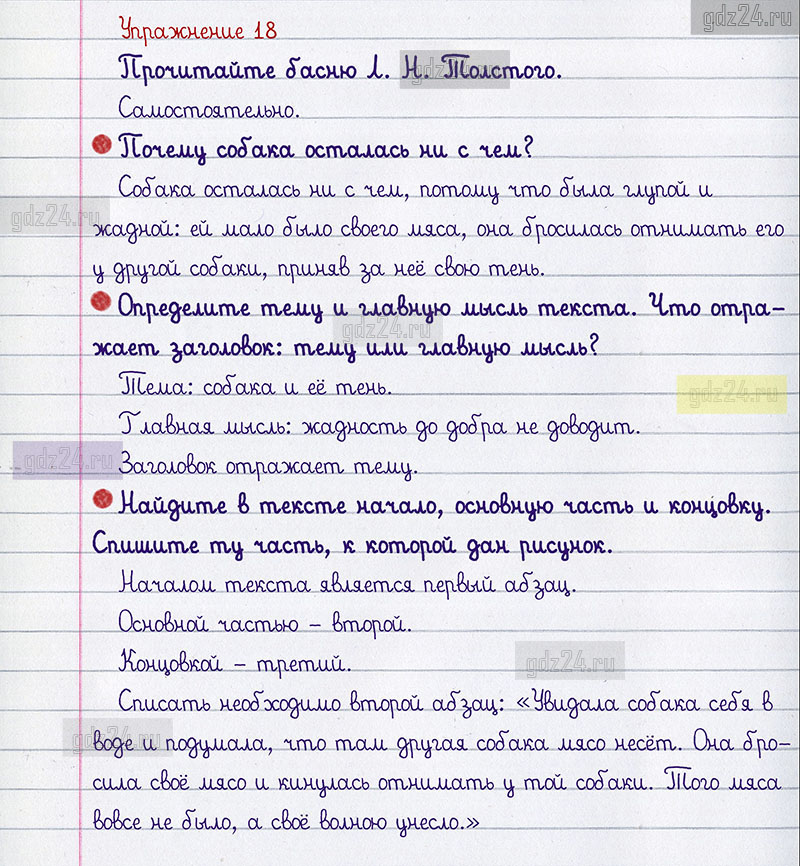 gdz24.ru
Упражнение 18
Прочитайте басню Л. Н. Толстого.
gdz24.ru
Самостоятельно.
Почему собака осталась ни с чем?
Собака осталась ни с чем, потому что была глупой и
gdz24.ru
жадной: ей мало было своего мяса, она бросилась отнимать его
у другой собаки, приняв за неё свою тень.
Определите тему и главную мысль текста. Что отра-
gdz24.ru
жает заголовок: тему или главную мысль?
Тема: собака и её тень.
gdz24.ru
Главная мысль: жадность до добра не доводит.
gdz24.ru
Заголовок отражает тему.
Найдите в тексте начало, основную часть и концовку.
Спишите ту часть, к которой дан рисунок.
Началом текста является первый абзац.
Основной частью – второй.
Концовкой – третий.
gdz24.ru
Списать необходимо второй абзац: «Увидала собака себя в
gdz24.ru
воде и подумала, что там другая собака мясо несёт. Она бро-
сила своё мясо и кинулась отнимать у той собаки. Того мяса
вовсе не было, а своё волною унесло.»